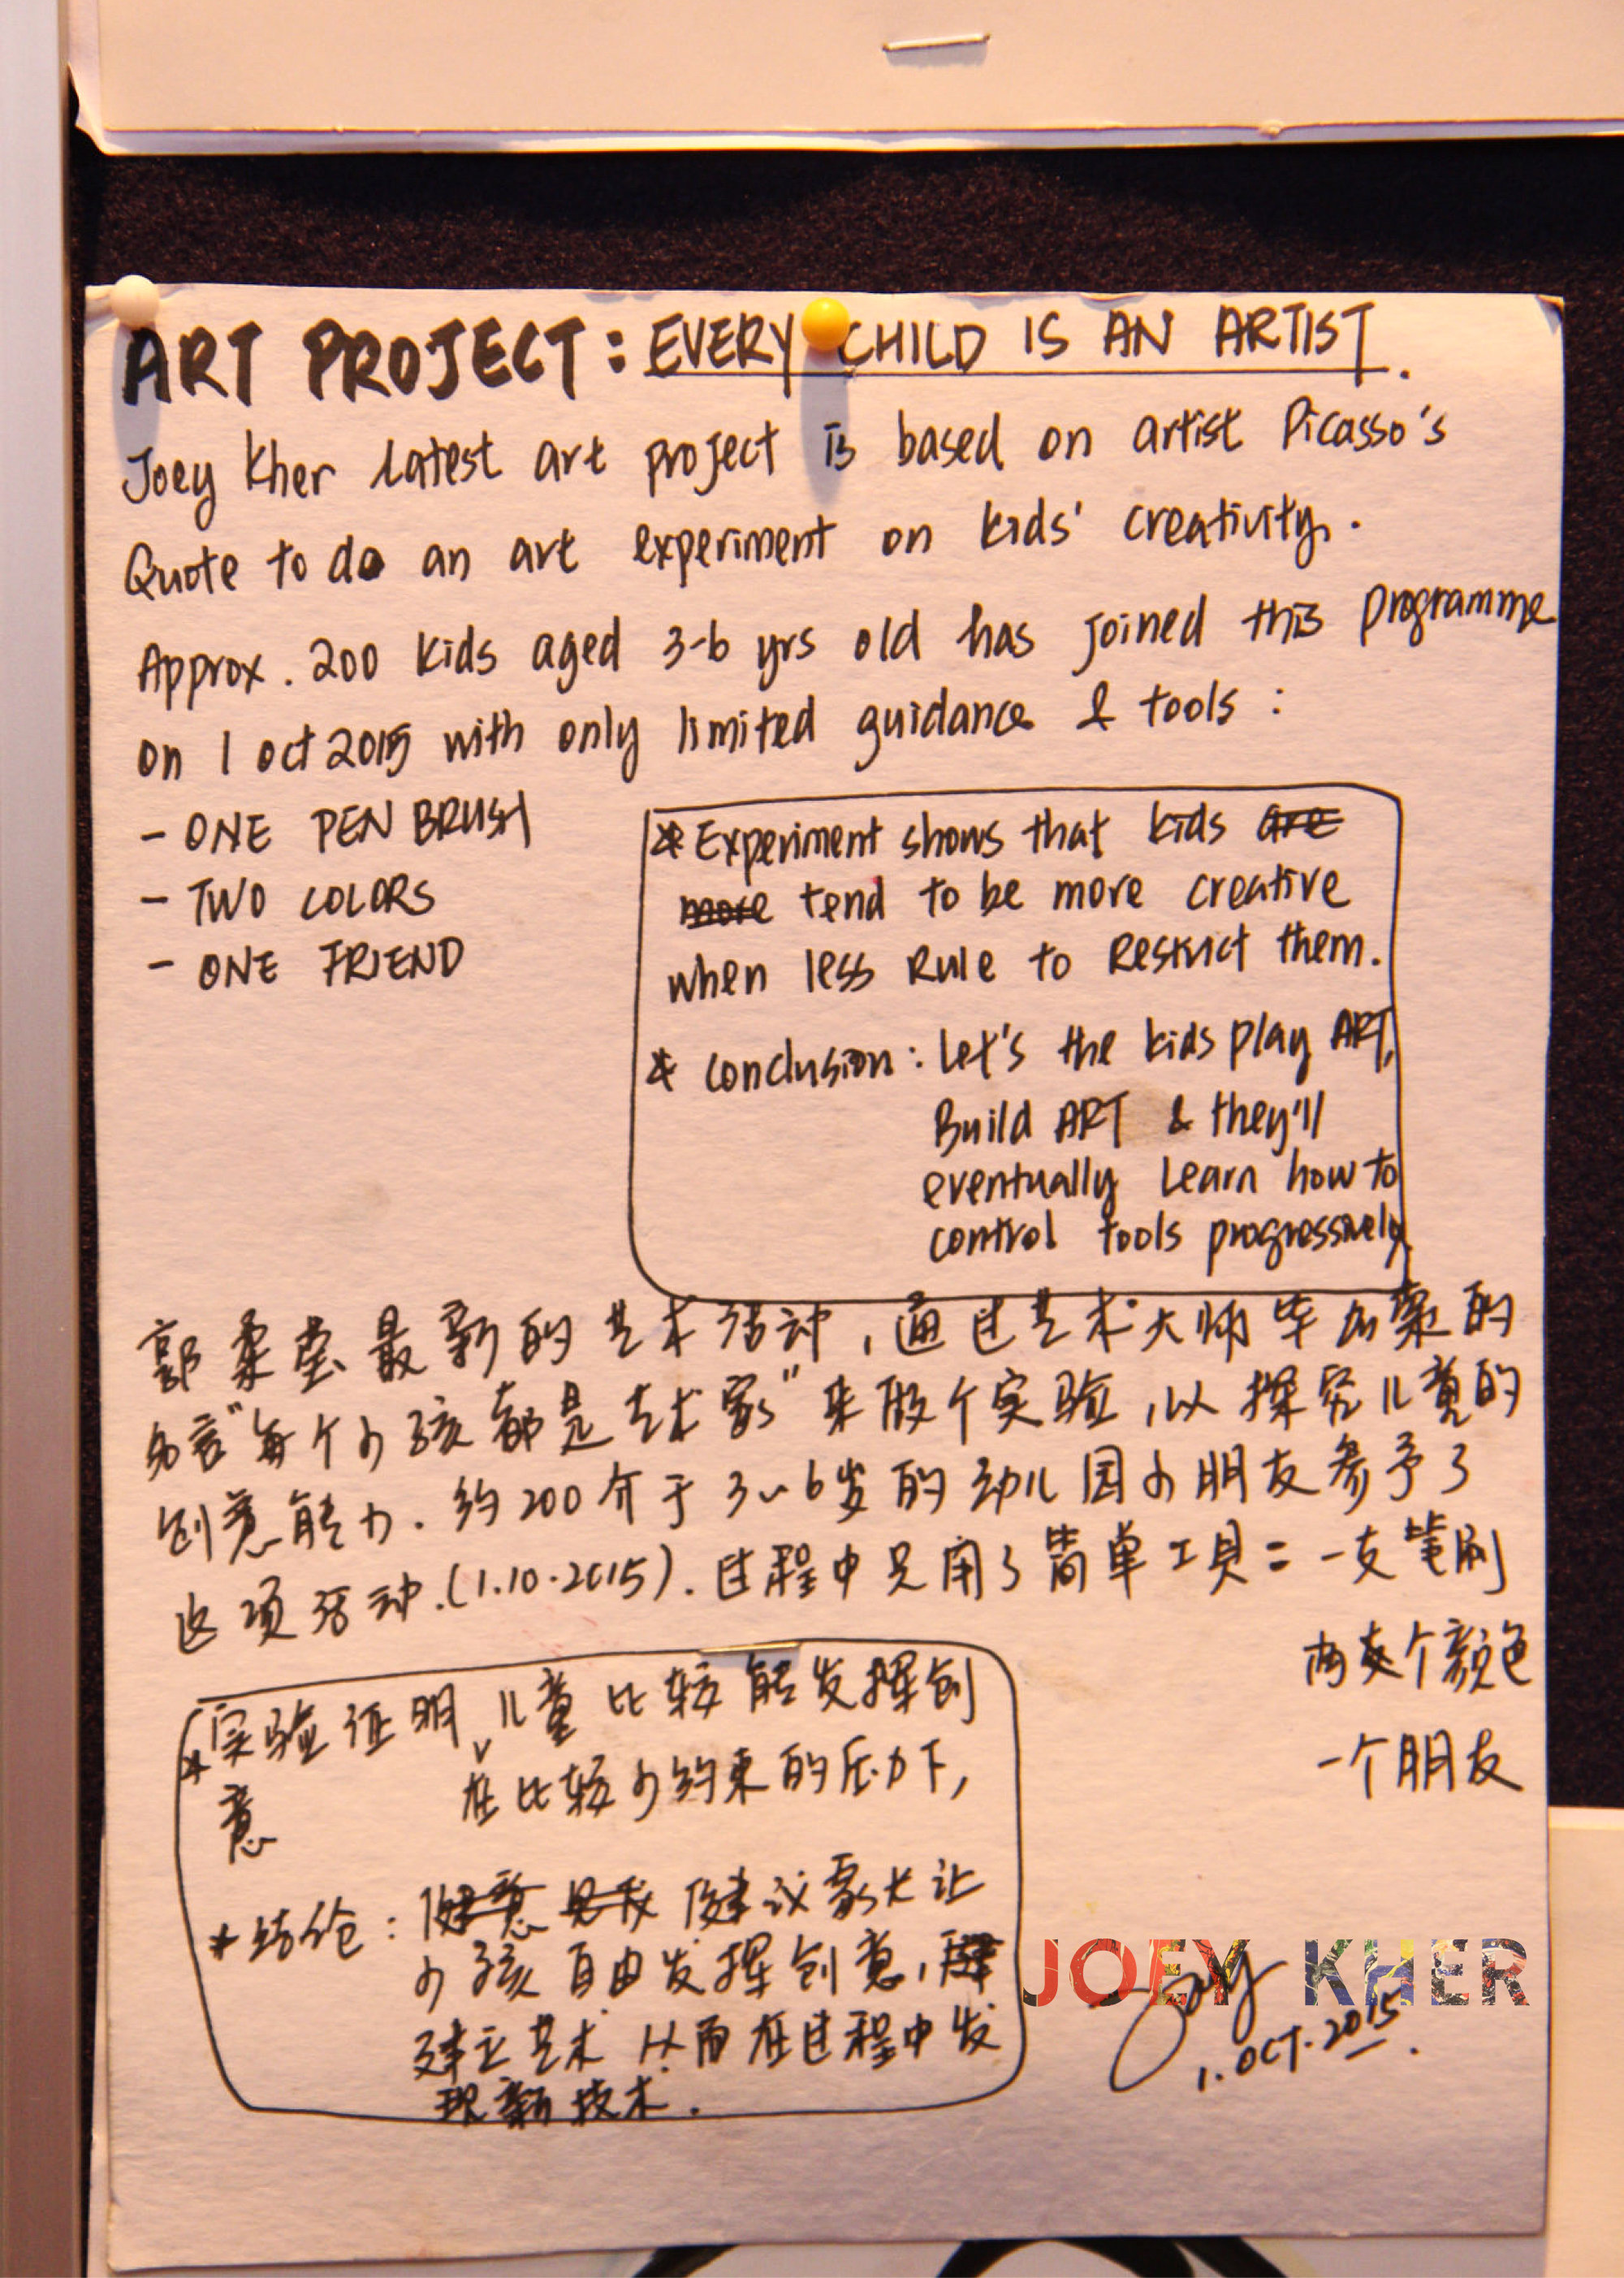 ART PROJECT: EVERY CHILD IS AN ARTIST.
Joey Kher latest art project is based on artist Picasso's
Quote to do an art experiment on kids' creativity.
Approx. 200 kids aged 3-6 yrs old has joined this programme
on 1 oct 2015 with only limited guidance & tools:
- ONE PEN BRUSH
- TWO COLORS
- ONE FRIEND
* Experiment shows that kids are
more tend to be more creative
when less Rule to Restrict them.
* Conclusion: Let's the kids play ART,
Build ART & they'll
eventually learn how to
control tools progressively
郭柔莹最新的艺术活动,通过艺术大师毕加索的
名言"每个小孩都是艺术家"来做个实验,以探究儿童的
创意能力.约200介于3~6岁的幼儿园小朋友参予了
这项活动.(1.10.2015).过程中只用了简单工具:一支笔刷
两支个颜色
一个朋友
*实验证明儿童比较能发挥创
意 在比较少约束的压力下,
*结论: 建议家长让
小孩自由发挥创意,
建立艺术 从而在过程中发
现新技术.
JOEY KHER
Joey
1.OCT.2015.